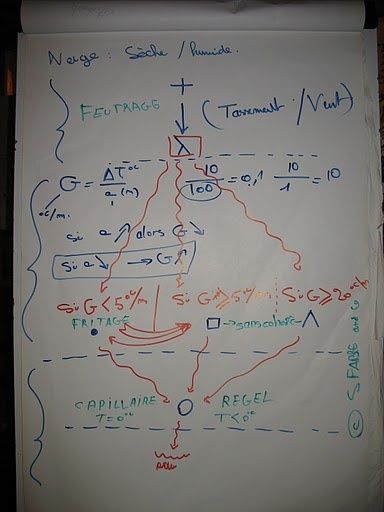 Neige : Sèche / humide.
+
FEUTRAGE
(Tassement / Vent)
λ
G = ΔT°c / e (m)
10/100 = 0,1 10/1 = 10
°c/m.
si e ↗ alors G ↘
Si e ↘ → G ↗
Si G < 5°c/m Si G ≥ 5°c/m Si G ≥ 20°c/m
FRITAGE
□ → sans cohésion ∧
CAPILLAIRE REGEL
T = 0°c T < 0°c
© S FABRE and Co